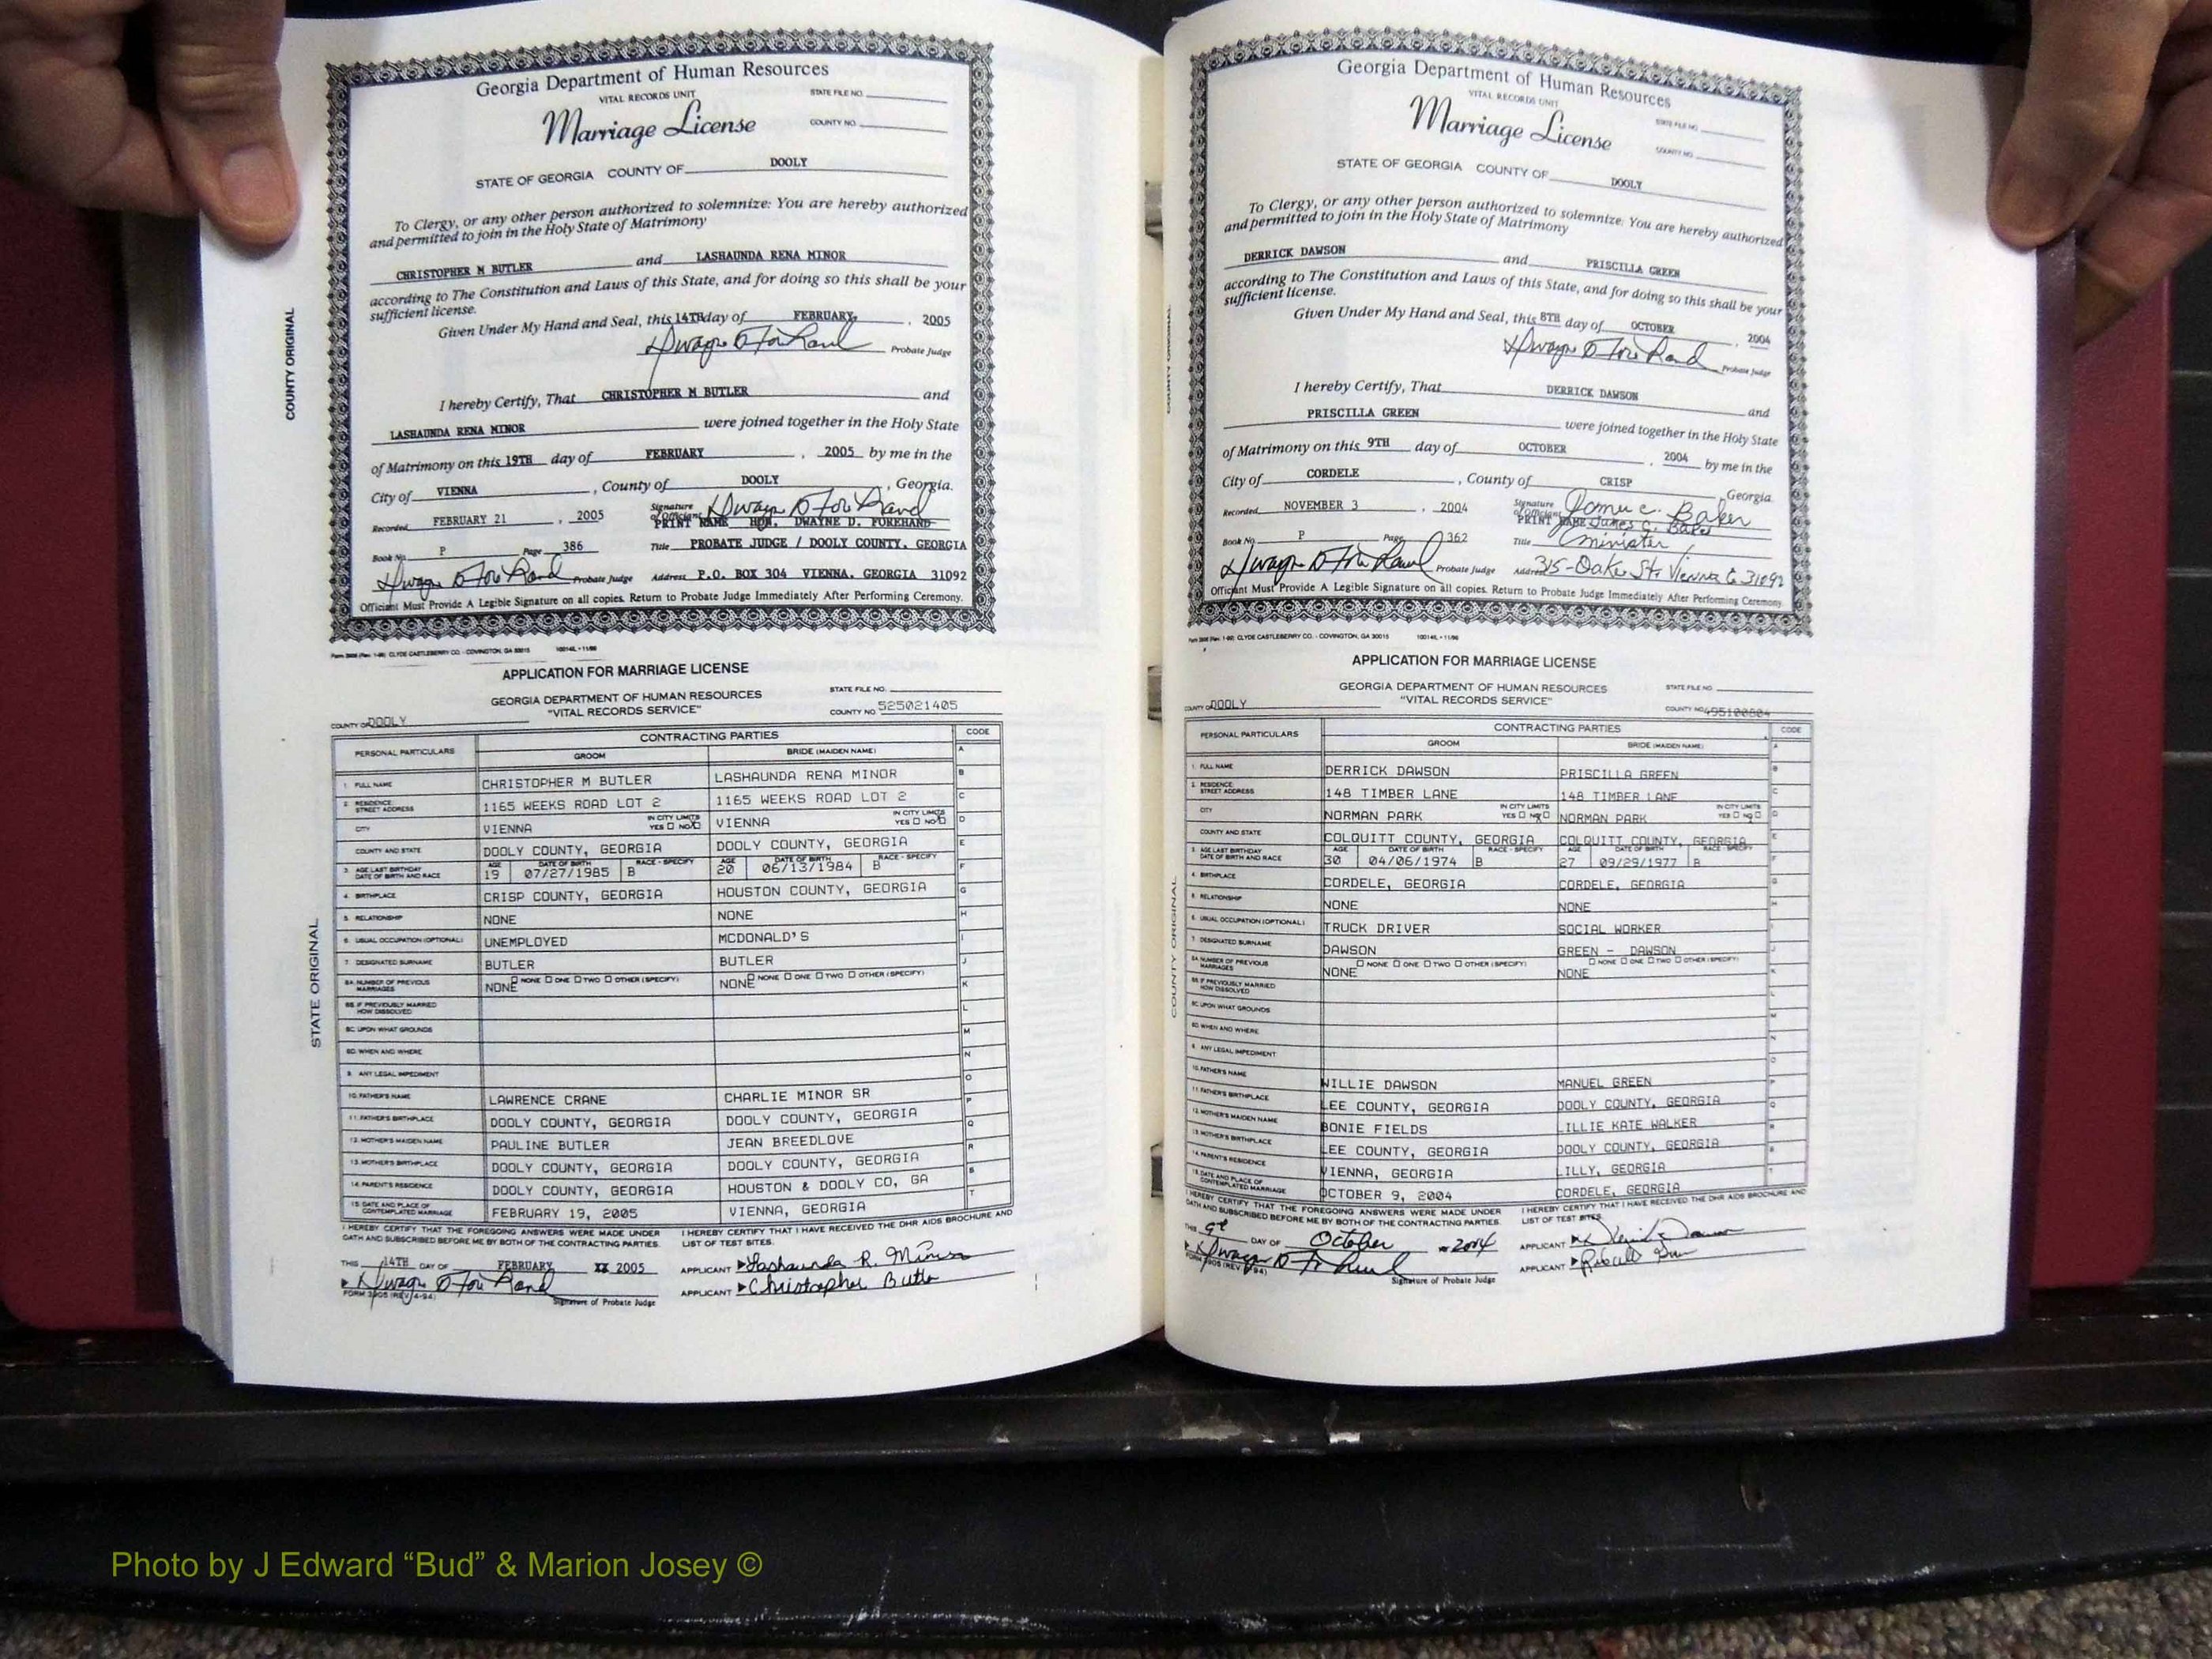 COUNTY ORIGINAL
Georgia Department of Human Resources
VITAL RECORDS UNIT
STATE FILE NO.
Marriage License
COUNTY NO.
STATE OF GEORGIA COUNTY OF DOOLY
To Clergy, or any other person authorized to solemnize: You are hereby authorized
and permitted to join in the Holy State of Matrimony
CHRISTOPHER M BUTLER and LASHAUNDA RENA MINOR
according to The Constitution and Laws of this State, and for doing so this shall be your
sufficient license.
Given Under My Hand and Seal, this 14TH day of FEBRUARY, , 2005
Probate Judge
I hereby Certify, That CHRISTOPHER M BUTLER and
LASHAUNDA RENA MINOR were joined together in the Holy State
of Matrimony on this 19TH day of FEBRUARY , 2005 by me in the
City of VIENNA , County of DOOLY , Georgia.
Recorded FEBRUARY 21 , 2005 Signature of Officiant
PRINT NAME HON. DWAYNE D. FOREHAND
Book No. P Page 386 Title PROBATE JUDGE / DOOLY COUNTY, GEORGIA
Probate Judge Address P.O. BOX 304 VIENNA, GEORGIA 31092
Officiant Must Provide A Legible Signature on all copies. Return to Probate Judge Immediately After Performing Ceremony.
CLYDE CASTLEBERRY CO. - COVINGTON, GA 30015
STATE ORIGINAL
APPLICATION FOR MARRIAGE LICENSE
GEORGIA DEPARTMENT OF HUMAN RESOURCES
STATE FILE NO.
"VITAL RECORDS SERVICE"
COUNTY OF DOOLY
COUNTY NO. 525021405
PERSONAL PARTICULARS CONTRACTING PARTIES CODE
GROOM BRIDE (MAIDEN NAME) A
1. FULL NAME CHRISTOPHER M BUTLER LASHAUNDA RENA MINOR B
2. RESIDENCE: STREET ADDRESS 1165 WEEKS ROAD LOT 2 1165 WEEKS ROAD LOT 2 C
CITY VIENNA IN CITY LIMITS YES NO VIENNA IN CITY LIMITS YES NO D
COUNTY AND STATE DOOLY COUNTY, GEORGIA DOOLY COUNTY, GEORGIA E
3. AGE LAST BIRTHDAY DATE OF BIRTH AND RACE AGE 19 DATE OF BIRTH 07/27/1985 RACE - SPECIFY B AGE 20 DATE OF BIRTH 06/13/1984 RACE - SPECIFY B F
4. BIRTHPLACE CRISP COUNTY, GEORGIA HOUSTON COUNTY, GEORGIA G
5. RELATIONSHIP NONE NONE H
6. USUAL OCCUPATION (OPTIONAL) UNEMPLOYED MCDONALD'S I
7. DESIGNATED SURNAME BUTLER BUTLER J
8A. NUMBER OF PREVIOUS MARRIAGES NONE NONE ONE TWO OTHER (SPECIFY) NONE NONE ONE TWO OTHER (SPECIFY) K
8B. IF PREVIOUSLY MARRIED HOW DISSOLVED L
8C. UPON WHAT GROUNDS M
8D. WHEN AND WHERE N
9. ANY LEGAL IMPEDIMENT O
10. FATHER'S NAME LAWRENCE CRANE CHARLIE MINOR SR P
11. FATHER'S BIRTHPLACE DOOLY COUNTY, GEORGIA DOOLY COUNTY, GEORGIA Q
12. MOTHER'S MAIDEN NAME PAULINE BUTLER JEAN BREEDLOVE R
13. MOTHER'S BIRTHPLACE DOOLY COUNTY, GEORGIA DOOLY COUNTY, GEORGIA S
14. PARENT'S RESIDENCE DOOLY COUNTY, GEORGIA HOUSTON & DOOLY CO, GA T
15. DATE AND PLACE OF CONTEMPLATED MARRIAGE FEBRUARY 19, 2005 VIENNA, GEORGIA
I HEREBY CERTIFY THAT THE FOREGOING ANSWERS WERE MADE UNDER
OATH AND SUBSCRIBED BEFORE ME BY BOTH OF THE CONTRACTING PARTIES.
I HEREBY CERTIFY THAT I HAVE RECEIVED THE DHR AIDS BROCHURE AND
LIST OF TEST SITES.
THIS 14TH DAY OF FEBRUARY XX 2005
APPLICANT Lashaunda R. Minor
APPLICANT Christopher Butler
FORM 3905 (REV. 4-94)
Signature of Probate Judge
COUNTY ORIGINAL
Georgia Department of Human Resources
VITAL RECORDS UNIT
STATE FILE NO.
Marriage License
COUNTY NO.
STATE OF GEORGIA COUNTY OF DOOLY
To Clergy, or any other person authorized to solemnize: You are hereby authorized
and permitted to join in the Holy State of Matrimony
DERRICK DAWSON and PRISCILLA GREEN
according to The Constitution and Laws of this State, and for doing so this shall be your
sufficient license.
Given Under My Hand and Seal, this 8TH day of OCTOBER , 2004
Probate Judge
I hereby Certify, That DERRICK DAWSON and
PRISCILLA GREEN were joined together in the Holy State
of Matrimony on this 9TH day of OCTOBER , 2004 by me in the
City of CORDELE , County of CRISP , Georgia.
Recorded NOVEMBER 3 , 2004 Signature of Officiant James C. Baker
PRINT NAME James C. Baker
Book No. P Page 362 Title Minister
Probate Judge Address 315-Oake St. Vienna G 31092
Officiant Must Provide A Legible Signature on all copies. Return to Probate Judge Immediately After Performing Ceremony.
CLYDE CASTLEBERRY CO. - COVINGTON, GA 30015
COUNTY ORIGINAL
APPLICATION FOR MARRIAGE LICENSE
GEORGIA DEPARTMENT OF HUMAN RESOURCES
STATE FILE NO.
"VITAL RECORDS SERVICE"
COUNTY OF DOOLY
COUNTY NO.
PERSONAL PARTICULARS CONTRACTING PARTIES CODE
GROOM BRIDE (MAIDEN NAME) A
1. FULL NAME DERRICK DAWSON PRISCILLA GREEN B
2. RESIDENCE: STREET ADDRESS 148 TIMBER LANE 148 TIMBER LANE C
CITY NORMAN PARK IN CITY LIMITS YES NO NORMAN PARK IN CITY LIMITS YES NO D
COUNTY AND STATE COLQUITT COUNTY, GEORGIA COLQUITT COUNTY, GEORGIA E
3. AGE LAST BIRTHDAY DATE OF BIRTH AND RACE AGE 30 DATE OF BIRTH 04/06/1974 RACE - SPECIFY B AGE 27 DATE OF BIRTH 09/29/1977 RACE - SPECIFY B F
4. BIRTHPLACE CORDELE, GEORGIA CORDELE, GEORGIA G
5. RELATIONSHIP NONE NONE H
6. USUAL OCCUPATION (OPTIONAL) TRUCK DRIVER SOCIAL WORKER I
7. DESIGNATED SURNAME DAWSON GREEN - DAWSON J
8A. NUMBER OF PREVIOUS MARRIAGES NONE NONE ONE TWO OTHER (SPECIFY) NONE NONE ONE TWO OTHER (SPECIFY) K
8B. IF PREVIOUSLY MARRIED HOW DISSOLVED L
8C. UPON WHAT GROUNDS M
8D. WHEN AND WHERE N
9. ANY LEGAL IMPEDIMENT O
10. FATHER'S NAME WILLIE DAWSON MANUEL GREEN P
11. FATHER'S BIRTHPLACE LEE COUNTY, GEORGIA DOOLY COUNTY, GEORGIA Q
12. MOTHER'S MAIDEN NAME BONIE FIELDS LILLIE KATE WALKER R
13. MOTHER'S BIRTHPLACE LEE COUNTY, GEORGIA DOOLY COUNTY, GEORGIA S
14. PARENT'S RESIDENCE VIENNA, GEORGIA LILLY, GEORGIA T
15. DATE AND PLACE OF CONTEMPLATED MARRIAGE OCTOBER 9, 2004 CORDELE, GEORGIA
I HEREBY CERTIFY THAT THE FOREGOING ANSWERS WERE MADE UNDER
OATH AND SUBSCRIBED BEFORE ME BY BOTH OF THE CONTRACTING PARTIES.
I HEREBY CERTIFY THAT I HAVE RECEIVED THE DHR AIDS BROCHURE AND
LIST OF TEST SITES.
THIS DAY OF October 2004
APPLICANT
APPLICANT
Signature of Probate Judge
Photo by J Edward “Bud” & Marion Josey ©